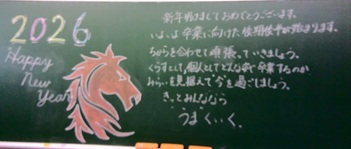 2026
Happy
New
Year
新年明けましておめでとうございます。
いよいよ卒業に向けた後期後半が始まります。
ちからを合わせて頑張っていきましょう。
くらすとして、個人としてどんな姿で卒業するのか
みらいを見据えて今を過ごしましょう。
きっとみんななら
うまくいく。